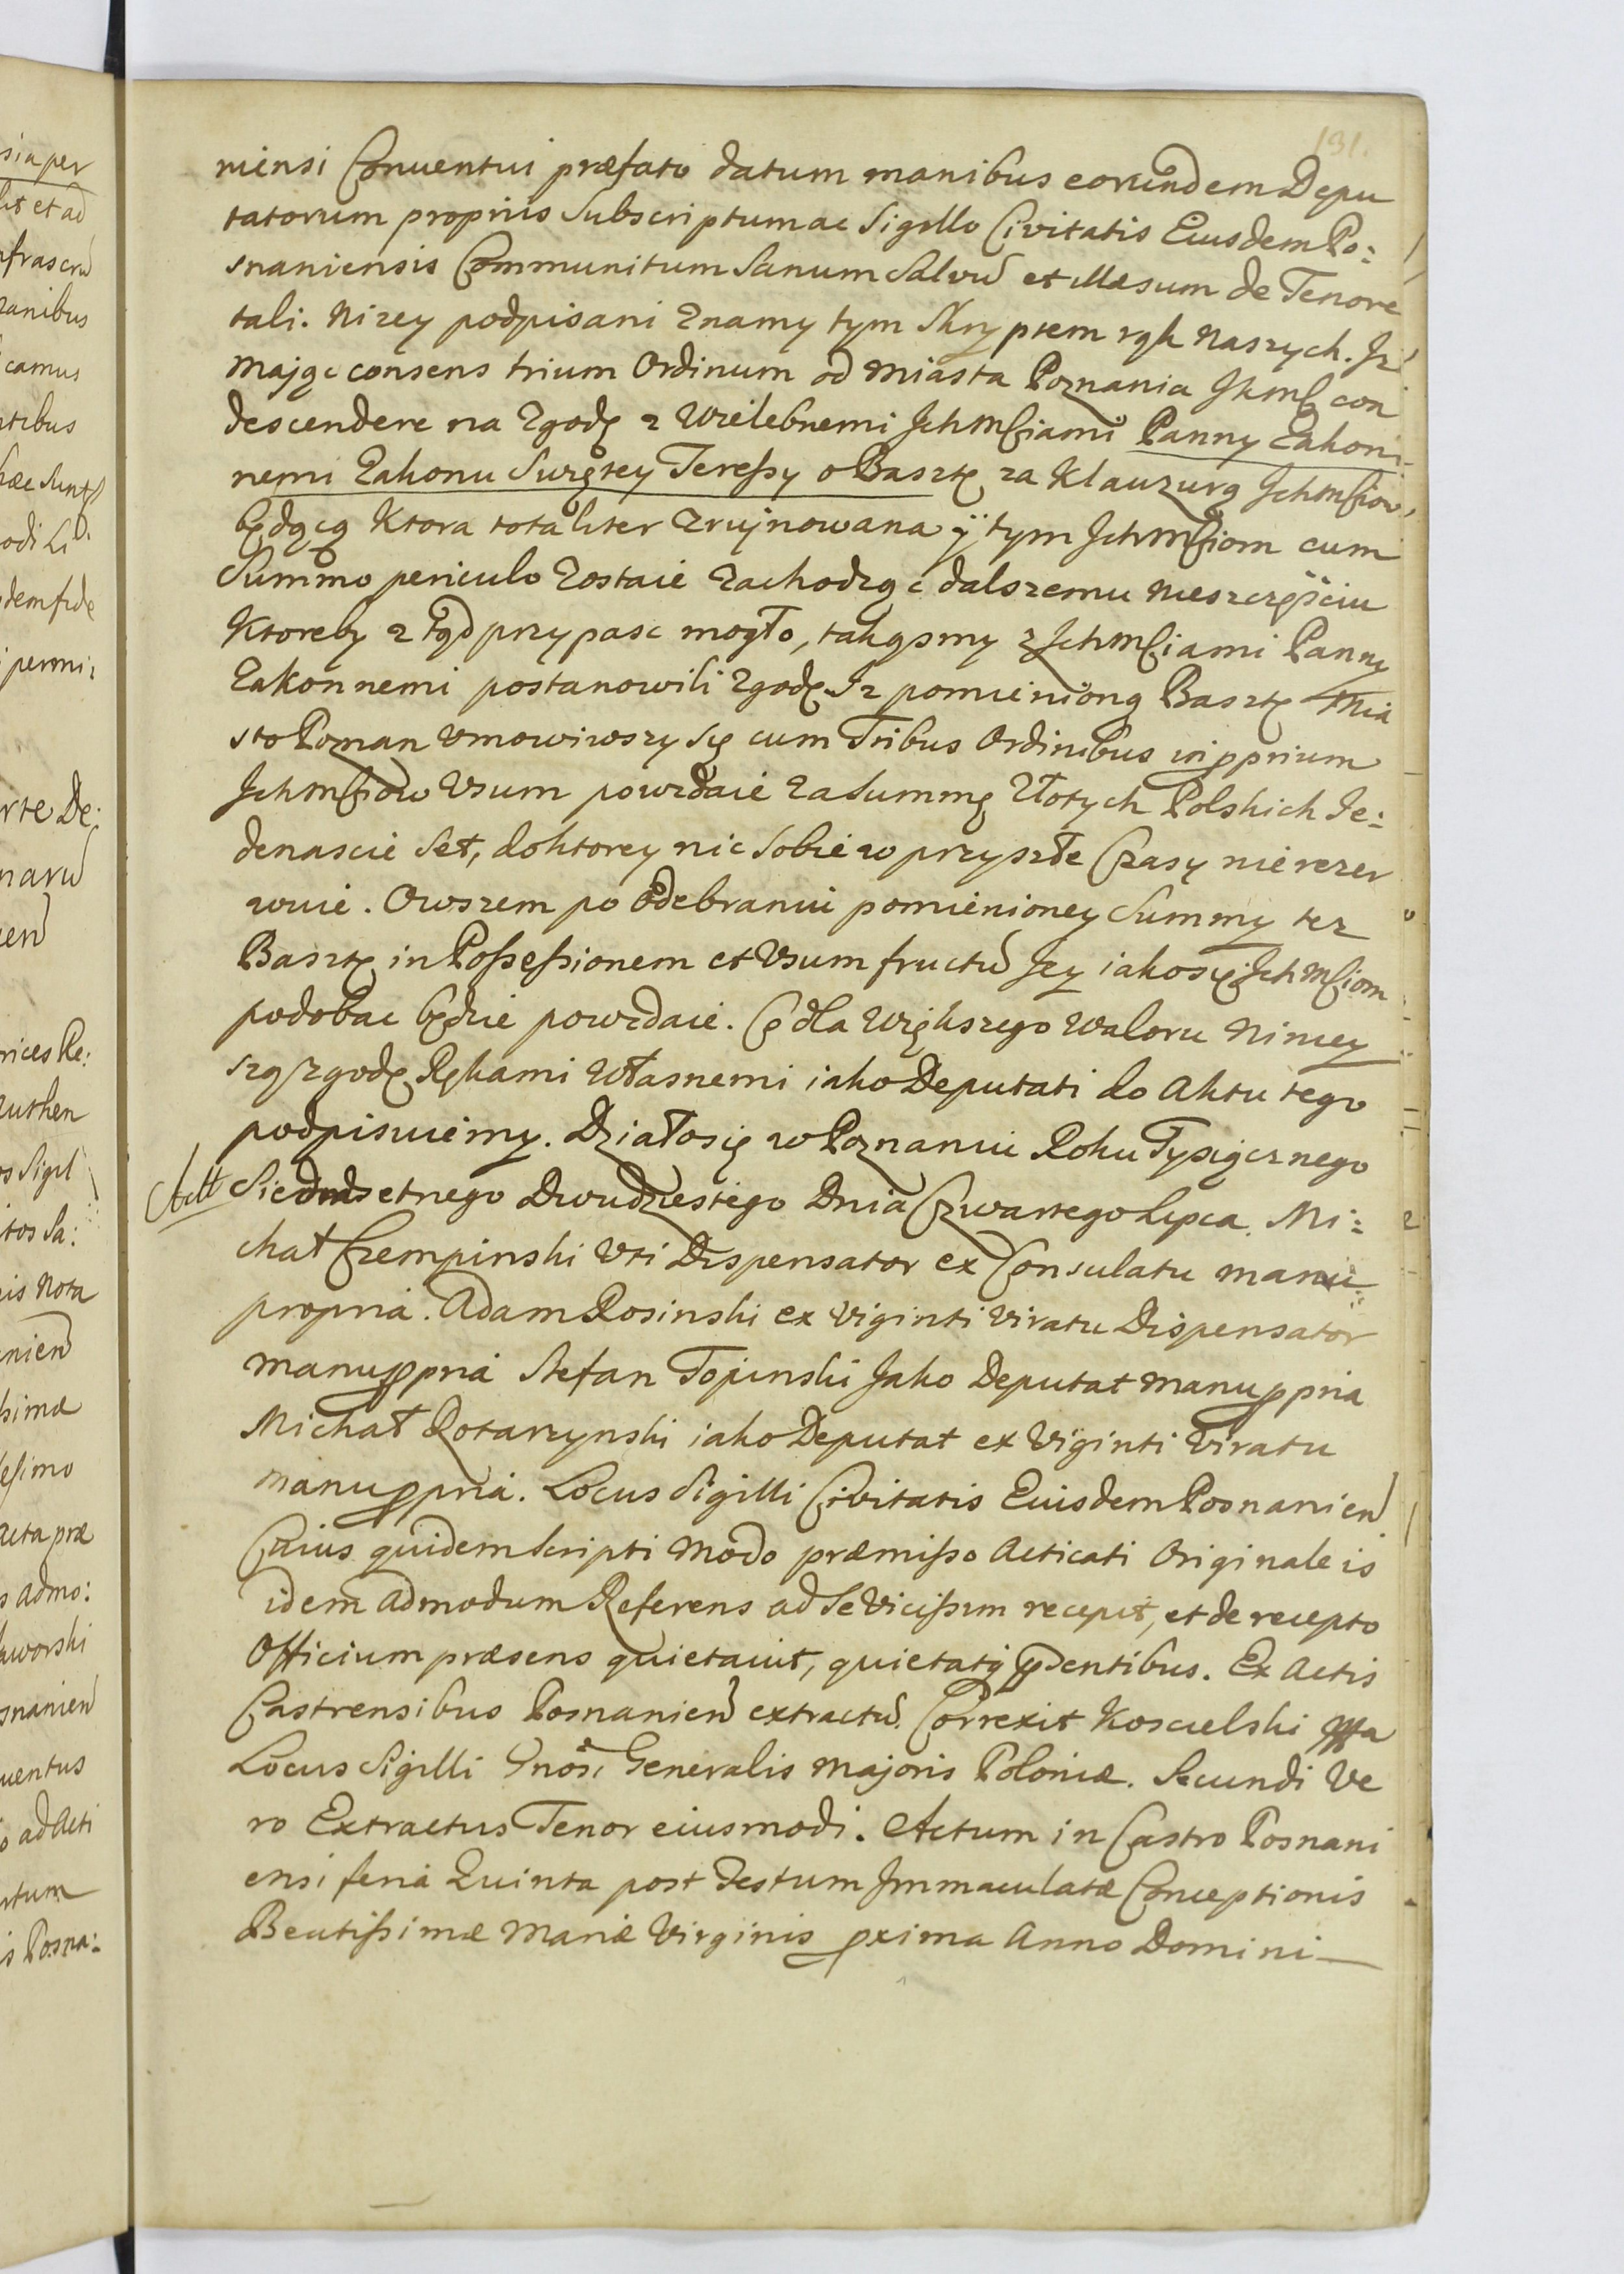 191.
niensi Conventui præfato datum manibus eorundem Depu
tatorum propriis Subscriptum ac Sigillo Civitatis Eiusdem Po:
snaniensis Communitum Sanum Salvũ et illæsum de Tenore
tali. Nizey podpisani Znamy tym Skryptem rąk Naszych. Jz
Mając consens trium Ordinum od Miasta Poznania JKMCi con
descendere na Zgodę z Wielebnemi JchMCiami Panny Zakon:
nemi Zakonu Swiętey Teressy o Basztę za Klauzurą JchMCiow,
będącą Ktora totaliter Zrujnowana ÿ tym JchMCiom cum
Summo periculo Zostaie Zachodząc dalszemu nieszczęściu
Ktoreby z tąd przypasc mogło, takąsmy z JchMCiami Panny
Zakonnemi postanowili Zgodę Iz pomienioną Basztę Mia
sto Poznan Umowiwszy Się cum Tribus Ordinibus in pprium
JchMCiow Usum powzdaie Za Summę Złotych Polskich Je:
denascie Set, do ktorey nic Sobie w przyszłe Czasy nie rezer
wuie. Owszem po Odebraniu pomienioney Summy tez
Basztę in Possessionem et Usum fructũ Jey iako się JchMCiom
podobac będzie powzdaie. Co dla Większego Waloru Niniey
szą Zgodę Rękami Własnemi iako Deputati do Aktu tego
podpisuiemy. Działo się w Poznaniu Roku Tysiącznego
Siedmsetnego Dwudziestego Dnia Czwartego Lipca. Mi:
chał Czempinski Uti Dispensator ex Consulatu manu
propria. Adam Rosinski ex Viginti Viratu Dispensator
manu ppria Stefan Topinski Jako Deputat manu ppria
Michał Rotarzynski iako Deputat ex Viginti Viratu
manu ppria. Locus Sigilli Civitatis Eiusdem Posnanien
Cuius quidem Scripti Modo præmisso Acticati Originale is
idem Admodum Referens ad Se Vicissim recepit, et de recepto
Officium præsens quietavit, quietatq pñtibus. Ex Actis
Castrensibus Posnanieñ extractũ. Correxit Koscielski
Locus Sigilli Generalis Majoris Poloniæ. Secundi Ve
ro Extractus Tenor eiusmodi. Actum in Castro Posnani
ensi feria Quinta post Festum Immaculatæ Conceptionis
Beatissimæ Mariæ Virginis pxima Anno Domini